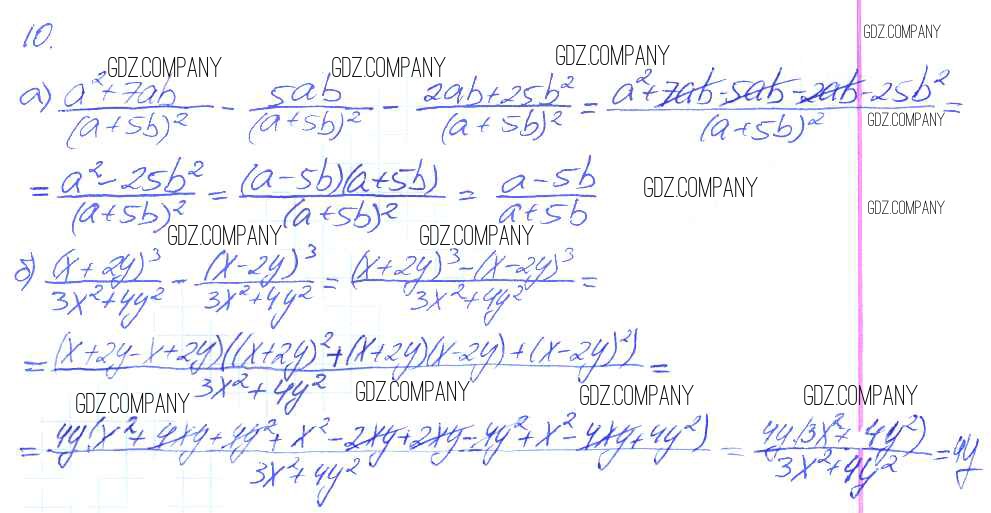 10.
GDZ.COMPANY
GDZ.COMPANY GDZ.COMPANY GDZ.COMPANY
а) (a²+7ab)/(a+5b)² - 5ab/(a+5b)² - (2ab+25b²)/(a+5b)² = (a²+7ab-5ab-2ab-25b²)/(a+5b)² =
GDZ.COMPANY
= (a²-25b²)/(a+5b)² = (a-5b)(a+5b)/(a+5b)² = (a-5b)/(a+5b)
GDZ.COMPANY GDZ.COMPANY
GDZ.COMPANY GDZ.COMPANY
б) (x+2y)³/(3x²+4y²) - (x-2y)³/(3x²+4y²) = ((x+2y)³-(x-2y)³)/(3x²+4y²) =
= (x+2y-x+2y)((x+2y)²+(x+2y)(x-2y)+(x-2y)²)/(3x²+4y²) =
GDZ.COMPANY GDZ.COMPANY GDZ.COMPANY GDZ.COMPANY
= 4y(x²+4xy+4y²+x²-2xy+2xy-4y²+x²-4xy+4y²)/(3x²+4y²) = 4y(3x²+4y²)/(3x²+4y²) = 4y